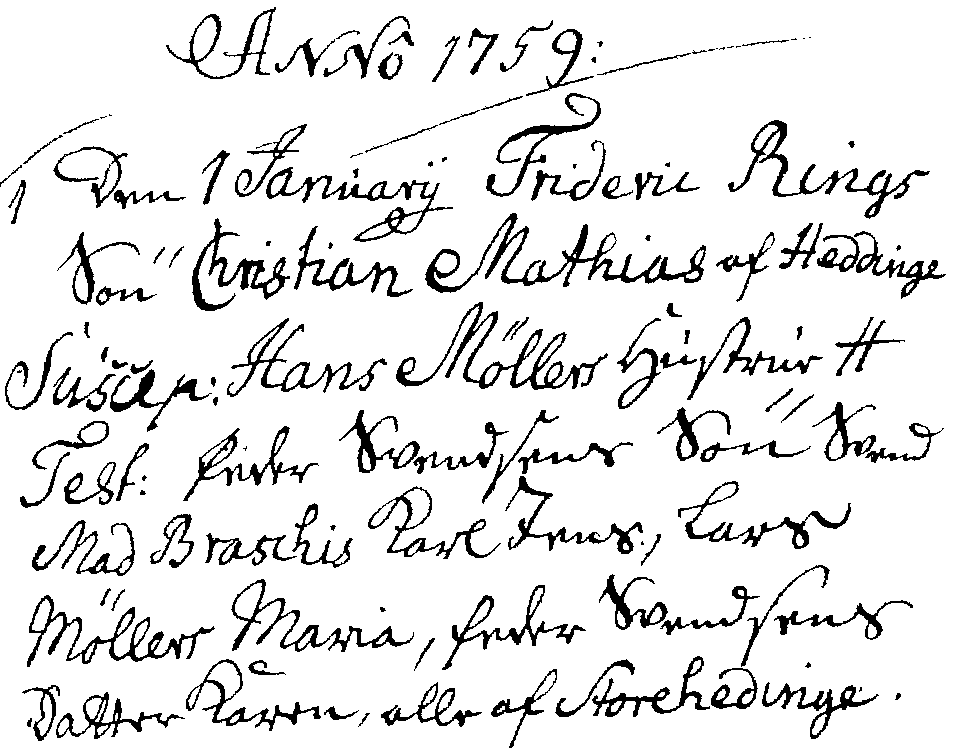 Anno 1759:
1 Den 1 Januarÿ Frideric Rings
Søn Christian Mathias af Heddinge
Suscep: Hans Møllers Hustrue #
Test: Peder Svendsens Søn Svend
Mad Braschis Karl Jens, Lars
Møllers Maria, Peder Svendsens
Datter Karen, alle af Storehedinge.